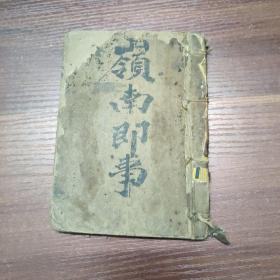 嶺南即事